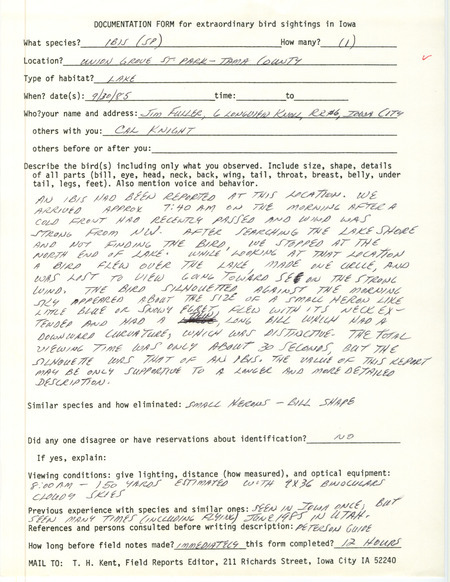 DOCUMENTATION FORM for extraordinary bird sightings in Iowa
What species? IBIS (SP) How many? (1)
Location? UNION GROVE ST PARK - TAMA COUNTY
Type of habitat? LAKE
When? date(s): 9/30/85 time: to
Who?your name and address: JIM FULLER, 6 LONGVIEW KNOLL, RR#6, IOWA CITY
others with you: CAL KNIGHT
others before or after you:
Describe the bird(s) including only what you observed. Include size, shape, details
of all parts (bill, eye, head, neck, back, wing, tail, throat, breast, belly, under
tail, legs, feet). Also mention voice and behavior.
AN IBIS HAD BEEN REPORTED AT THIS LOCATION. WE
ARRIVED APPROX 7:40 AM ON THE MORNING AFTER A
COLD FRONT HAD RECENTLY PASSED AND WIND WAS
STRONG FROM NW. AFTER SEARCHING THE LAKE SHORE
AND NOT FINDING THE BIRD, WE STOPPED AT THE
NORTH END OF LAKE. WHILE LOOKING AT THAT LOCATION
A BIRD FLEW OVER THE LAKE, MADE ONE CIRCLE, AND
WAS LOST TO VIEW GOING TOWARD SE ON THE STRONG
WIND. THE BIRD SILHOUETTED AGAINST THE MORNING
SKY APPEARED ABOUT THE SIZE OF A SMALL HERON LIKE
LITTLE BLUE OR SNOWY FLEW WITH ITS NECK EX-
TENDED AND HAD A LONG BILL WHICH HAD A
DOWNWARD CURVATURE, WHICH WAS DISTINCTIVE. THE TOTAL
VIEWING TIME WAS ONLY ABOUT 30 SECONDS, BUT THE
SILHOUETTE WAS THAT OF AN IBIS. THE VALUE OF THIS REPORT
MAY BE ONLY SUPPORTIVE TO A LONGER AND MORE DETAILED
DESCRIPTION.
Similar species and how eliminated: SMALL HERONS - BILL SHAPE
Did any one disagree or have reservations about identification? NO
If yes, explain:
Viewing conditions: give lighting, distance (how measured), and optical equipment:
8:00 AM - 150 YARDS ESTIMATED WITH 9X36 BINOCULARS
CLOUDY SKIES
Previous experience with species and similar ones: SEEN IN IOWA ONCE, BUT
SEEN MANY TIMES (INCLUDING FLYING) JUNE 1985 IN UTAH.
References and persons consulted before writing description: PETERSON GUIDE
How long before field notes made? IMMEDIATELY this form completed? 12 HOURS
MAIL TO: T. H. Kent, Field Reports Editor, 211 Richards Street, Iowa City IA 52240